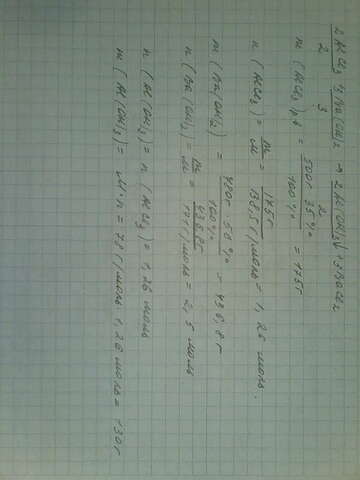 2AlCl3 + 3Ba(OH)2 → 2Al(OH)3↓ + 3BaCl2
2 3 2
m (AlCl3) = 500г · 35% / 100% = 175г
n (AlCl3) = m / M = 175г / 133,5 г/моль = 1,26 моль.
m (Ba(OH)2) = · 56% / 100% = 436,8 г
n (Ba(OH)2) = m / M = / 171 г/моль = 2,5 моль
n (Al(OH)3) = n (AlCl3) = 1,26 моль
m (Al(OH)3) = M · n = 78 г/моль · 1,26 моль =